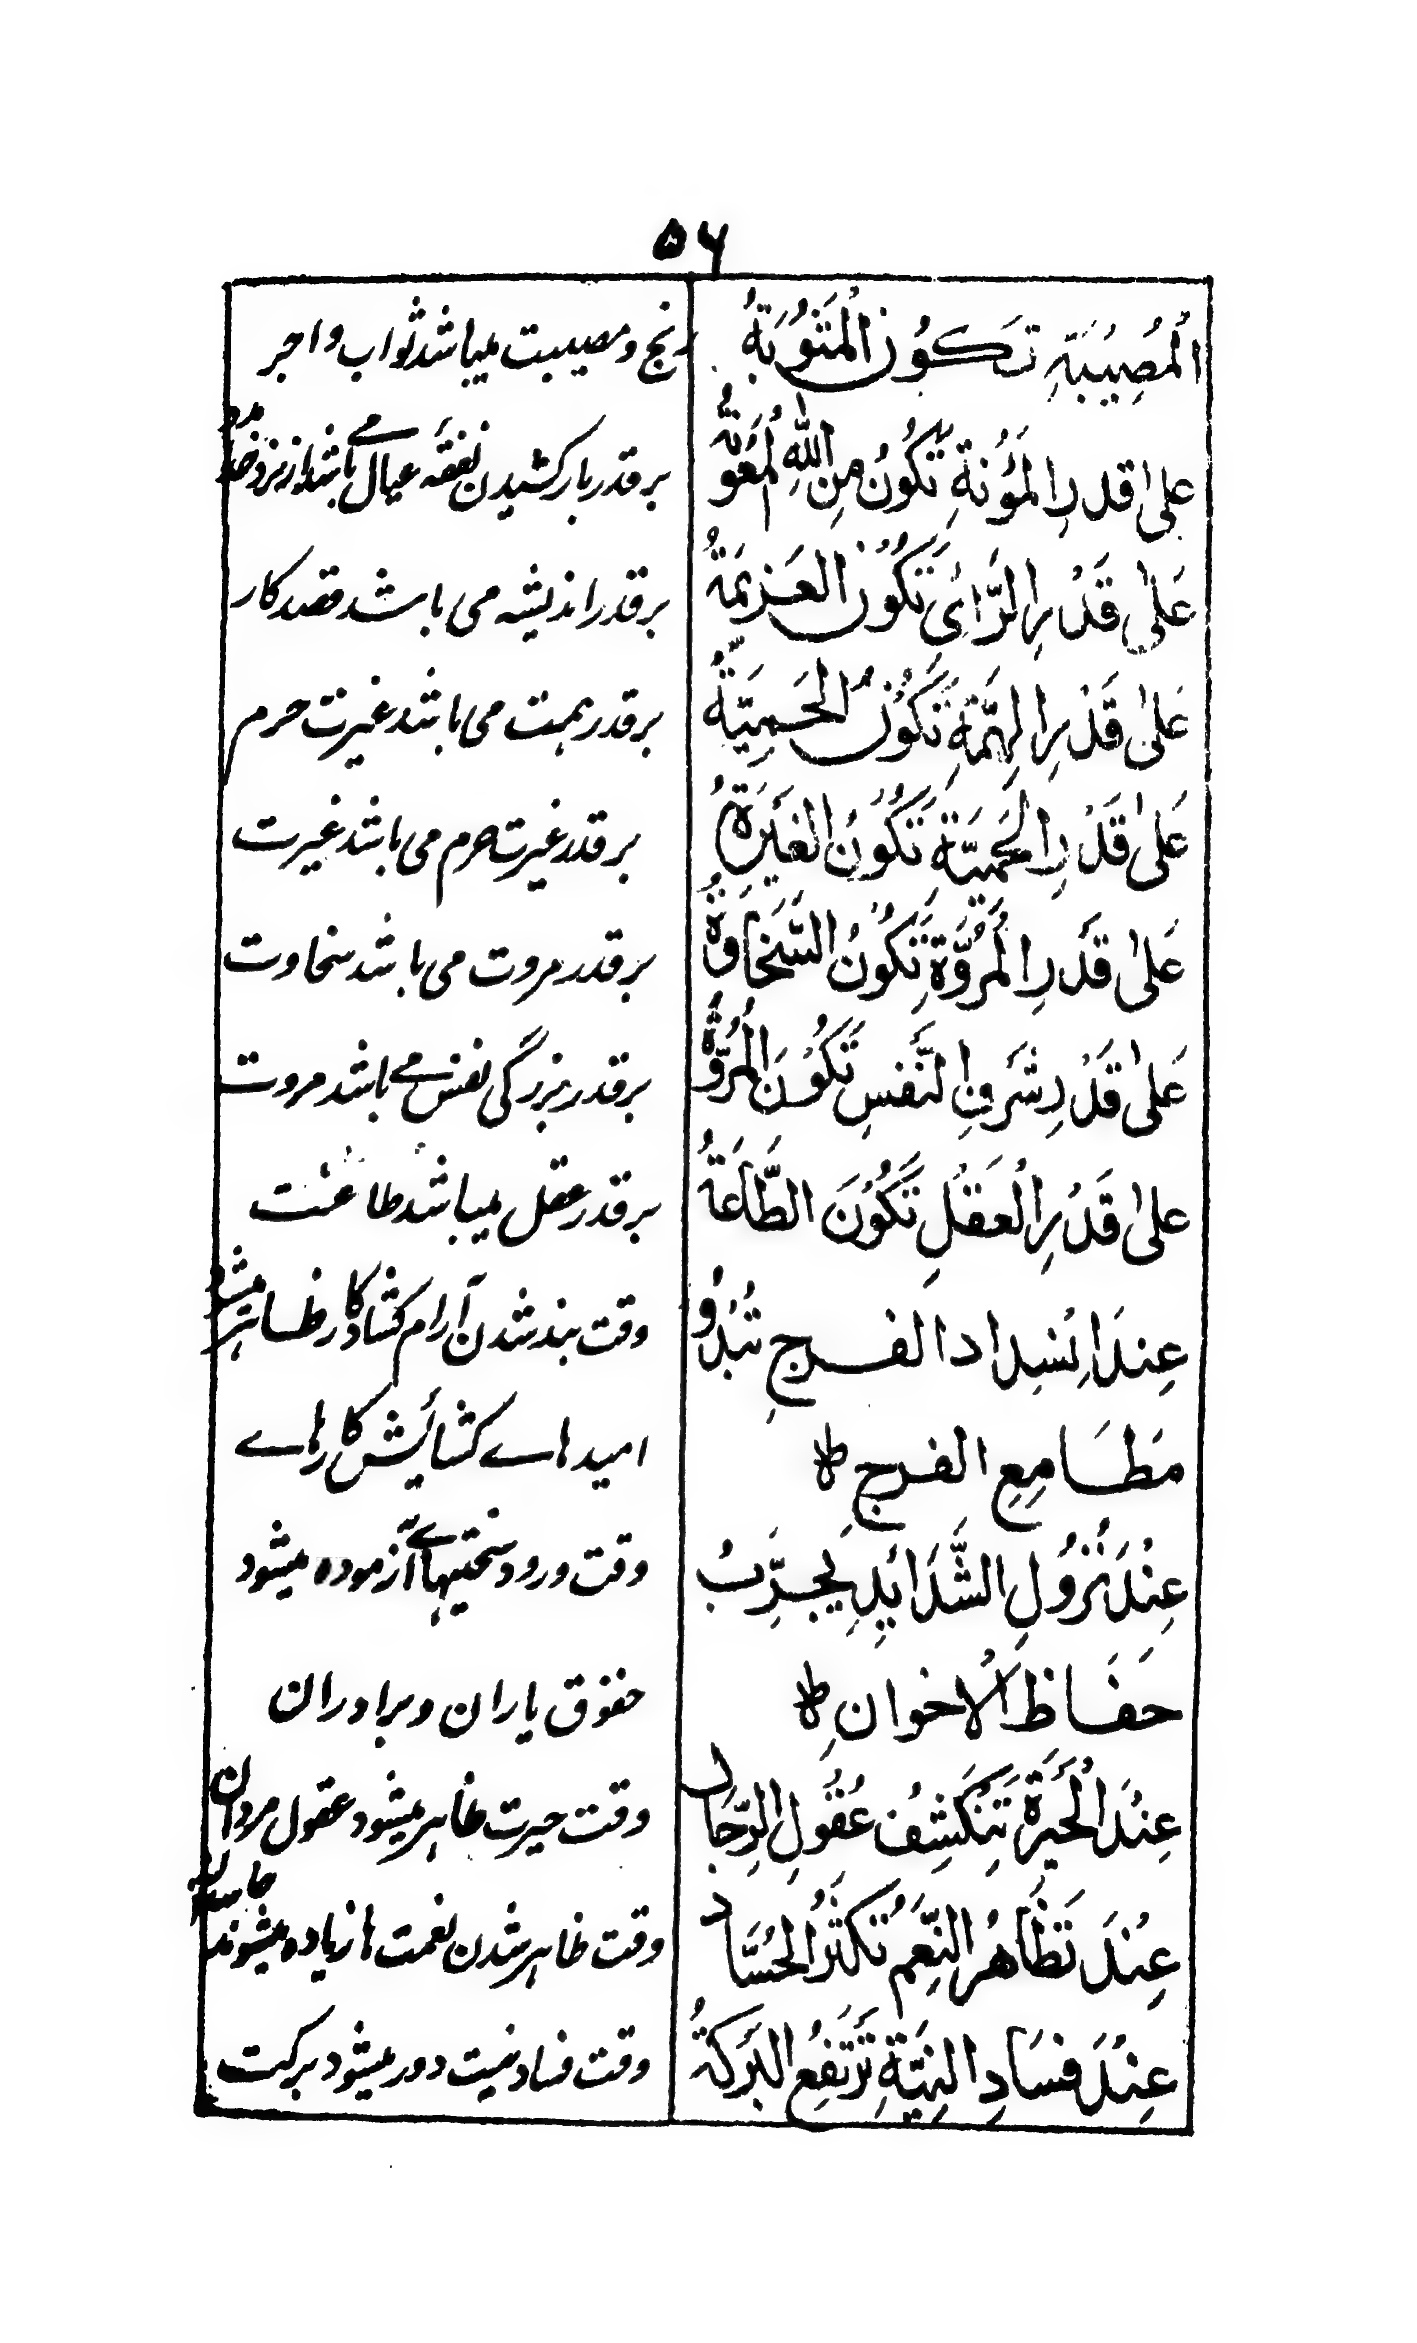 ۵۶
الْمُصِيْبَةِ تَكُوْنُ الْمَثُوْبَةُ
رنج و مصیبت میباشد ثواب و اجر
عَلىٰ قدرِ الْمَؤُنةِ تَكُوْنُ مِنَ اللهِ الْمَعُوْنَةُ
بر قدر بار کشیدن نفقه عیال می باشد از نزد خدا مدد
عَلىٰ قَدْرِ الرَّاىِ تَكُوْنُ الْعَزِيْمَةُ
بر قدر اندیشه می باشد قصد کار
عَلىٰ قَدْرِ الْهِمَّةِ تَكُوْنُ الْحَمِيَّةُ
بر قدر همت می باشد غیرت حرم
عَلىٰ قَدْرِ الْحَمِيَّةِ تَكُوْنُ الْغَيْرَةُ
بر قدر غیرت حرم می باشد غیرت
عَلىٰ قَدْرِ الْمُرُوَّةِ تَكُوْنُ السَّخَاوَةُ
بر قدر مروت می باشد سخاوت
عَلىٰ قَدْرِ شَرَفِ النَّفْسِ تَكُوْنَ الْمُرُوَّةُ
بر قدر بزرگی نفس می باشد مروت
عَلىٰ قَدْرِ الْعَقْلِ تَكُوْنَ الطَّاعَةُ
بر قدر عقل میباشد طاعت
عِندَ اِنْسِدادِ الفرجِ تَبْدُوْ
وقت بند شدن آرام کشاد کار ظاهر میشود
مَطَامِعِ الفرجِ ط
امید هاے کشائیش کار هاے
عِنْدَ نُزُوْلِ الشَّدَائِدِ يُجَرَّبُ
وقت ورود سختیهاے آزموده میشود
حفَاظُ الْاخوانِ ط
حقوق یاران و برادران
عِنْدَ الْحَيْرَةِ تَنْكَشِفُ عُقُوْلِ الرِّجَالِ
وقت حیرت ظاهر میشود عقول مردان
عِنْدَ تَظَاهُرِ النِّعَمِ تَكْثُرُ الْحُسَّادُ
وقت ظاهر شدن نعمت ها زیاده میشوند حاسدان
عِنْدَ فسَادِ النِيَّةِ تَرْتَفِعُ الْبَرَكَةُ
وقت فساد نیت دور میشود برکت